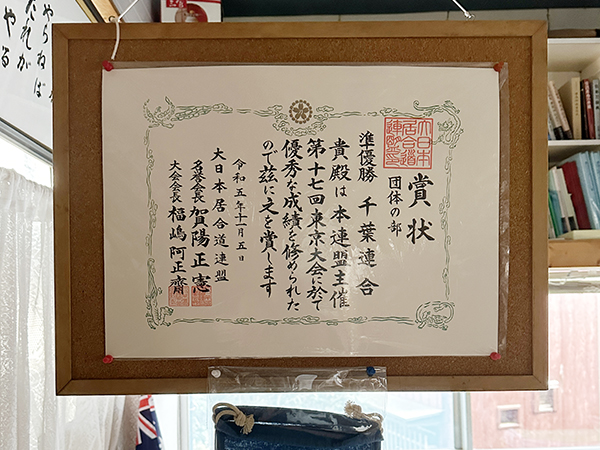 賞状
団体の部
準優勝 千葉連合
貴殿は本連盟主催
第十七回東京大会に於て
優秀な成績を修められた
ので茲に之を賞します
令和五年十一月五日
大日本居合道連盟
名誉会長 賀陽正憲
大会会長 福嶋阿正齋
大日本居合道連盟印
やらねば
だれが
やる